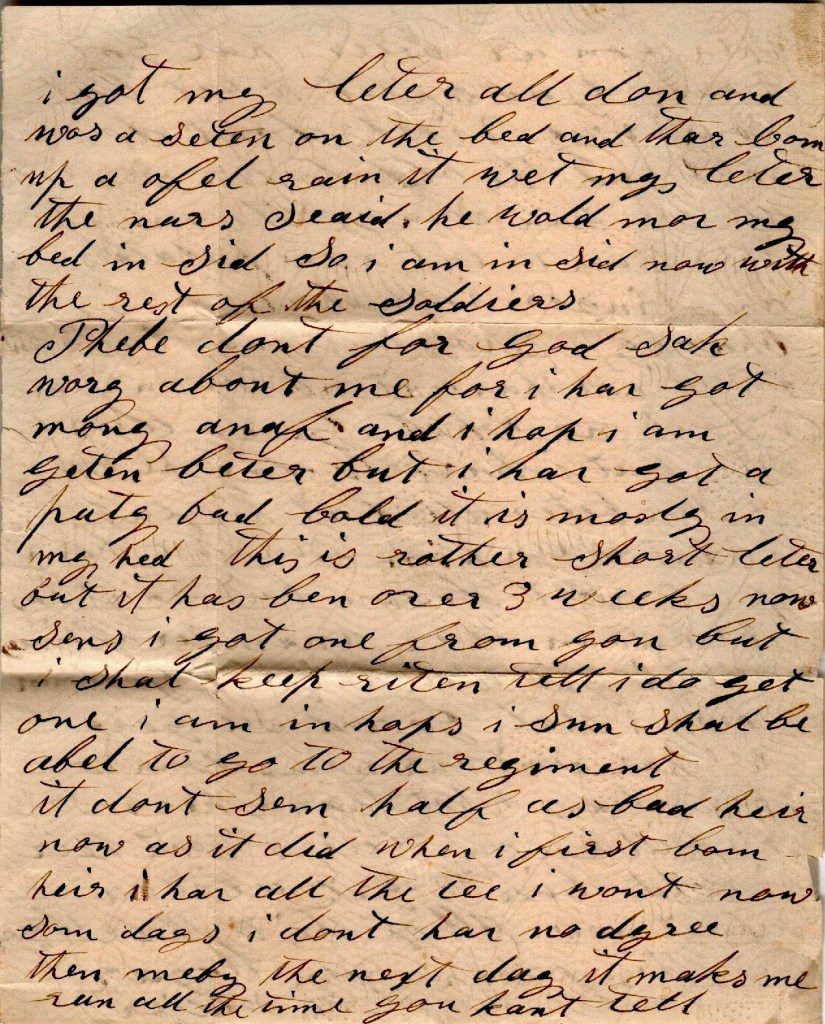 i got my leter all don and
was a seten on the bed and thar com
up a ofel rain it wet my leter
the nurs seaid he wold mov my
bed in sid so i am in sid now with
the rest of the soldiers
Phebe dont for god sak
wory about me for i hav got
mony anuf and i hop i am
geten beter but i hav got a
puty bad cold it is mosty in
my hed this is rather short leter
but it has ben over 3 weeks now
sens i got one from you but
i shal keep riten tell i do get
one i am in hops i sun shal be
abel to go to the regiment
it dont sem half as bad heir
now as it did when i first com
heir i hav all the tee i wont now
som days i dont hav no dyree
then meby the next day it maks me
run all the time you kant tell